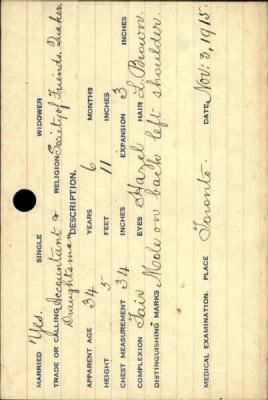 MARRIED Yes. SINGLE WIDOWER
TRADE OR CALLING Accountant & RELIGION Society of Friends. Quaker.
Draughtsman DESCRIPTION.
APPARENT AGE 34 YEARS 6 MONTHS
HEIGHT 5 FEET 11 INCHES
CHEST MEASUREMENT 34 INCHES EXPANSION 3 INCHES
COMPLEXION Fair EYES Hazel HAIR L. Brown.
DISTINGUISHING MARKS Mole on back left shoulder.
MEDICAL EXAMINATION. PLACE Toronto. DATE Nov: 3, 1915.